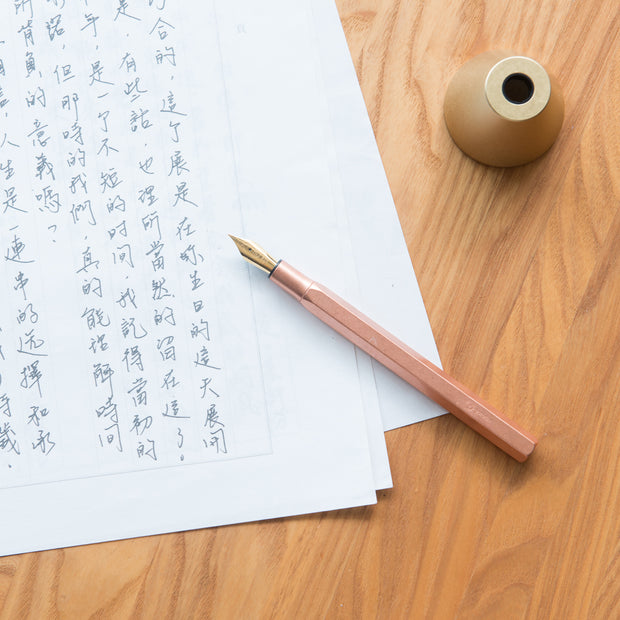 合的,這个展是在你生日的這天展開
是,有些話,也理所當然的留在這了。
年,是一个不短的時間,我記得當初的
路,但那時的我們,真的能理解時間
所背負的意義嗎?
人生是一連串的選擇和